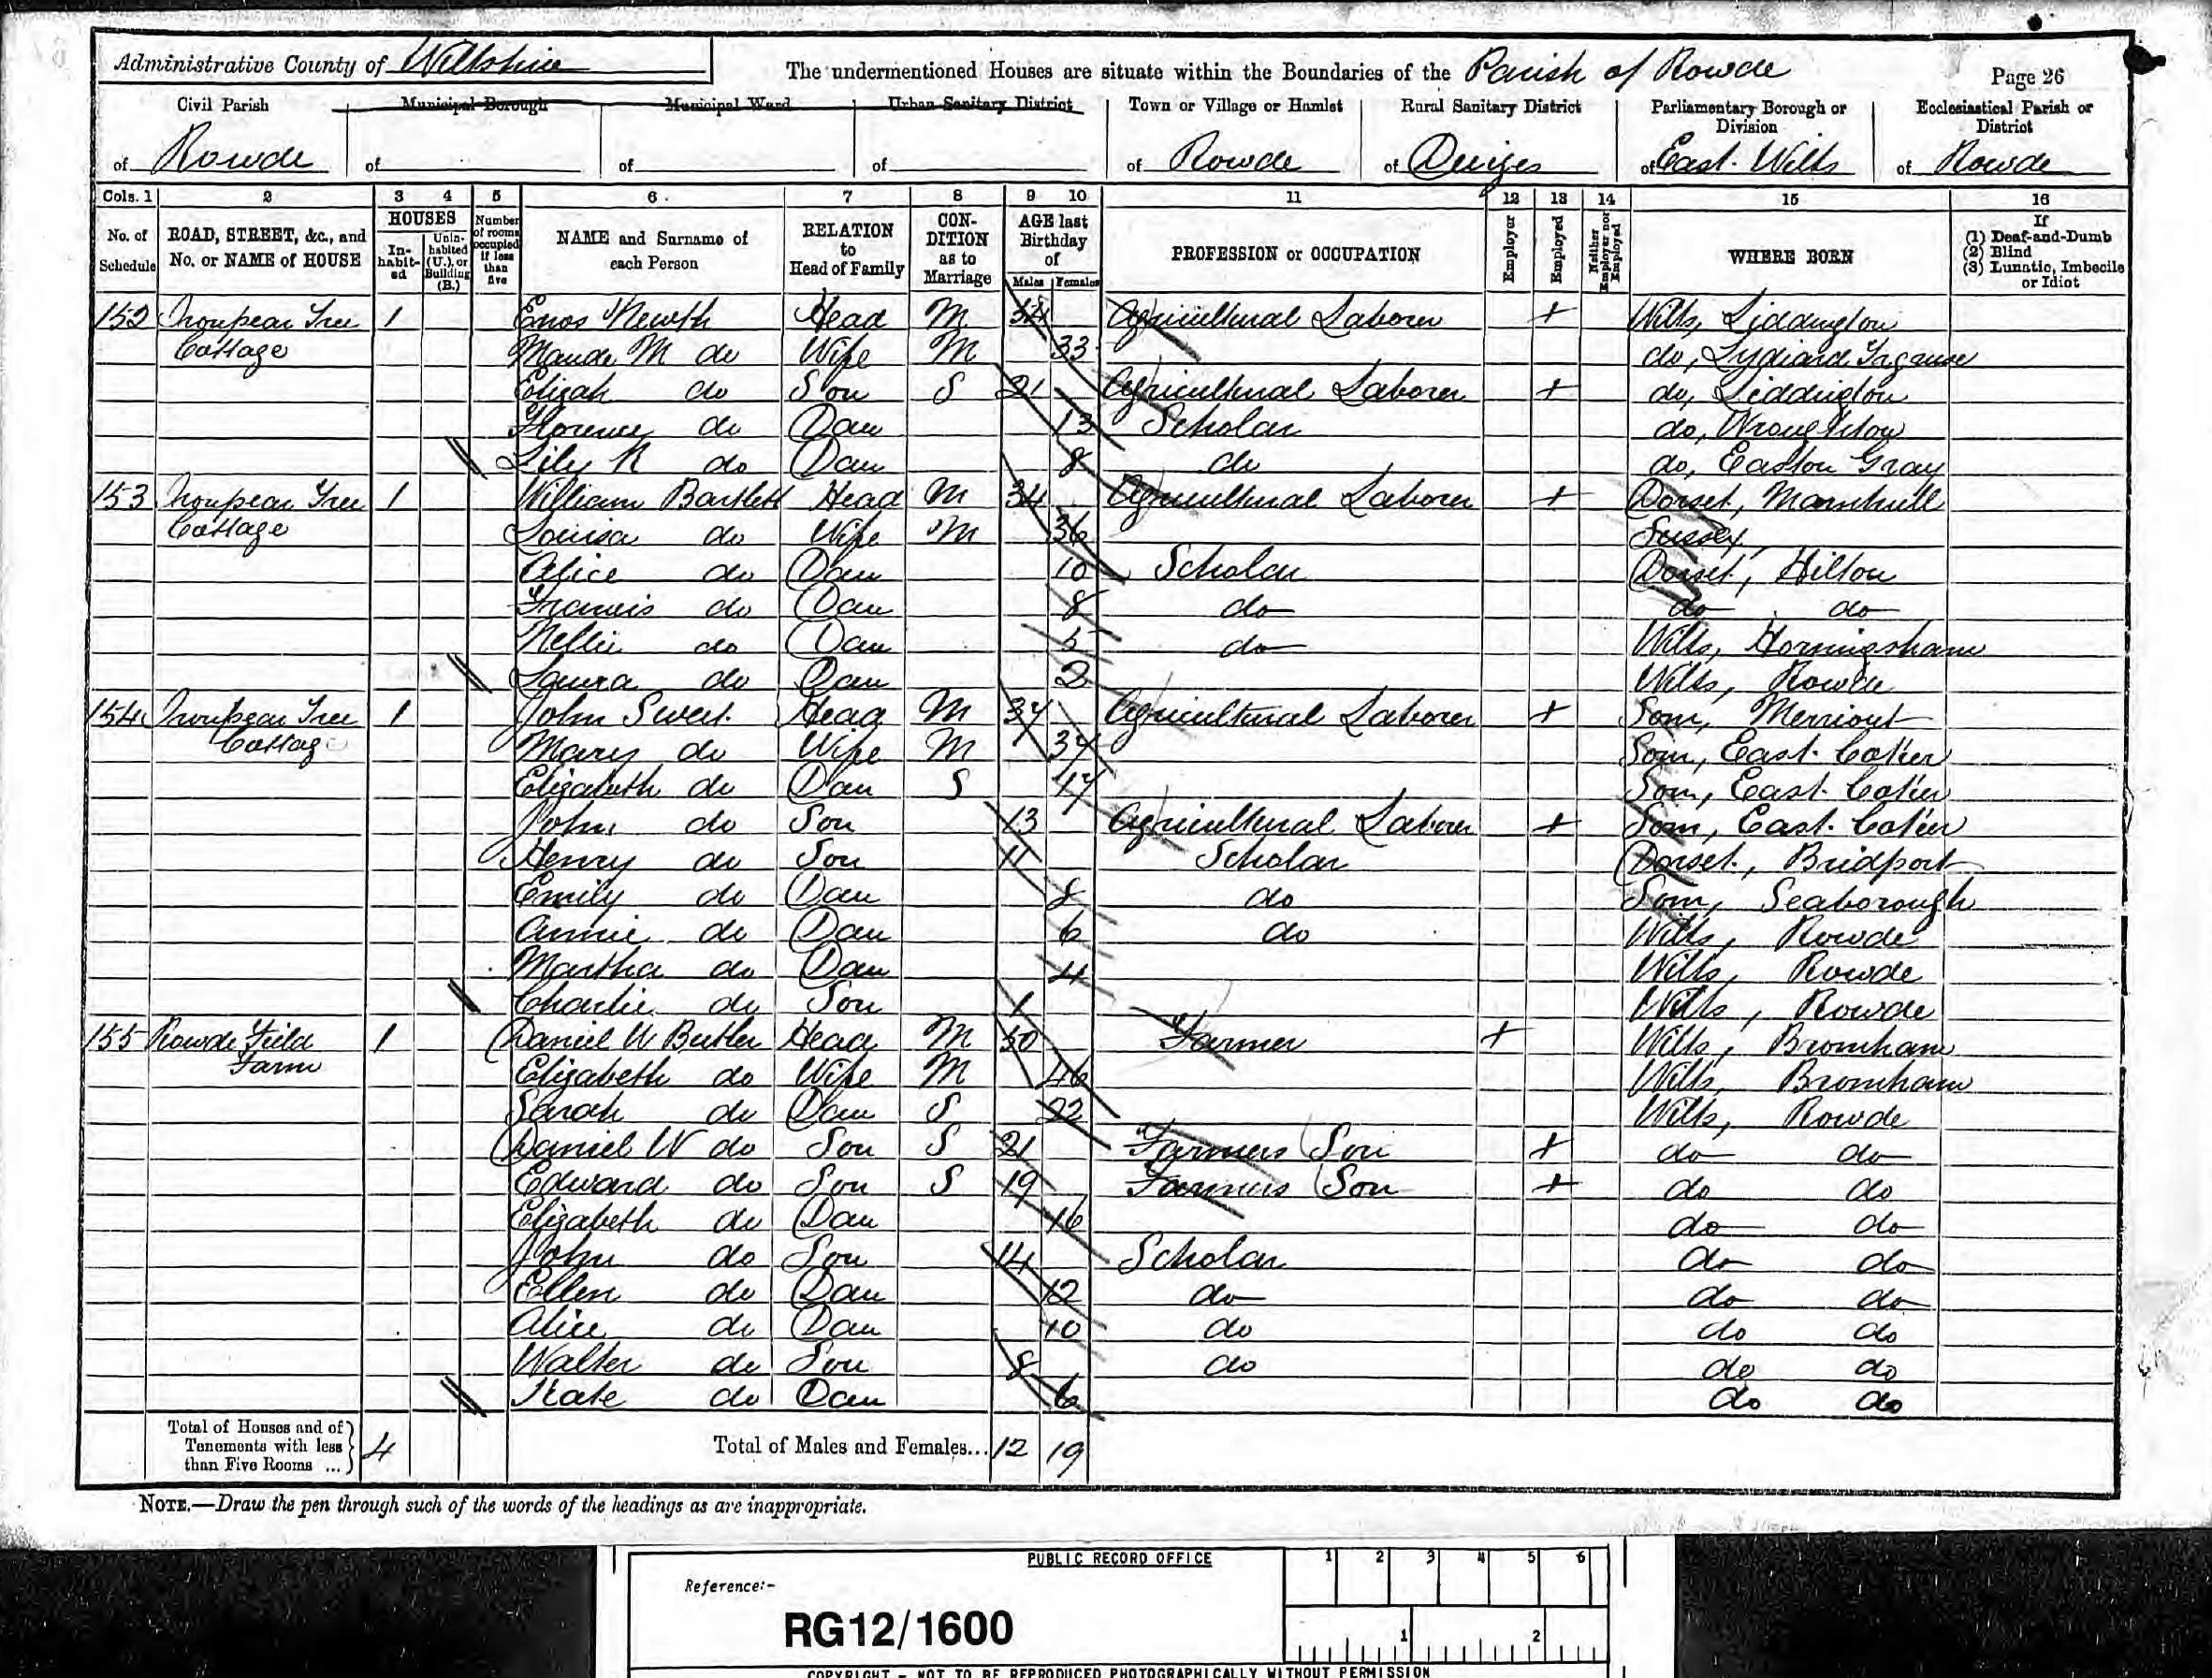 Administrative County of Wiltshire The undermentioned Houses are situate within the Boundaries of the Parish of Rowde Page 26
Civil Parish Municipal Borough Municipal Ward Urban Sanitary District Town or Village or Hamlet Rural Sanitary District Parliamentary Borough or Division Ecclesiastical Parish or District
of Rowde of of of of Rowde of Devizes of East Wilts of Rowde
Cols. 1 2 3 4 5 6 7 8 9 10 11 12 13 14 15 16
No. of Schedule ROAD, STREET, &c., and No. or NAME of HOUSE HOUSES In-habit-ed Unin-habited (U.), or Building (B.) Number of rooms occupied if less than five NAME and Surname of each Person RELATION to Head of Family CON-DITION as to Marriage AGE last Birthday of Males Females PROFESSION or OCCUPATION Employer Employed Neither Employer nor Employed WHERE BORN If (1) Deaf-and-Dumb (2) Blind (3) Lunatic, Imbecile or Idiot
152 Tree 1 Enos Newth Head M 54 Agricultural Laborer + Wilts, Liddington
Cottage Maude M do Wife M 33 do, Lydiard
Elijah do Son S 21 Agricultural Laborer + do, Liddington
Florence do Dau 13 Scholar do, Wroughton
Lily R do Dau 8 do do, Easton Gray
153 Tree 1 William Bartlett Head M 34 Agricultural Laborer + Dorset, Marnhull
Cottage Louisa do Wife M 36 Sussex
Alice do Dau 10 Scholar Dorset, Hilton
Francis do Dau 8 do do do
Nellie do Dau 5 do Wilts, Horningsham
Laura do Dau 2 Wilts, Rowde
154 Tree 1 John Sweet Head M 37 Agricultural Laborer + Som, Merriout
Cottag Mary do Wife M 37 Som, East Coker
Elizabeth do Dau S 17 Som, East Coker
John do Son 13 Agricultural Laborer + Som, East Coker
Henry do Son 11 Scholar Dorset, Bridport
Emily do Dau 8 do Som, Seaborough
Annie do Dau 6 do Wilts, Rowde
Martha do Dau 4 Wilts, Rowde
Charlie do Son 1 Wilts, Rowde
155 Rowde Field 1 Daniel W Butler Head M 50 Farmer + Wilts, Bromham
Farm Elizabeth do Wife M 46 Wilts, Bromham
Sarah do Dau S 22 Wilts, Rowde
Daniel W do Son S 21 Farmers Son + do do
Edward do Son S 19 Farmers Son + do do
Elizabeth do Dau 16 do do
John do Son 14 Scholar do do
Ellen do Dau 12 do do do
Alice do Dau 10 do do do
Walter do Son 8 do do do
Kate do Dau 6 do do
Total of Houses and of Tenements with less than Five Rooms ... 4 Total of Males and Females... 12 19
NOTE.—Draw the pen through such of the words of the headings as are inappropriate.
PUBLIC RECORD OFFICE 1 2 3 4 5 6
Reference:-
RG12/1600 1 2
COPYRIGHT - NOT TO BE REPRODUCED PHOTOGRAPHICALLY WITHOUT PERMISSION